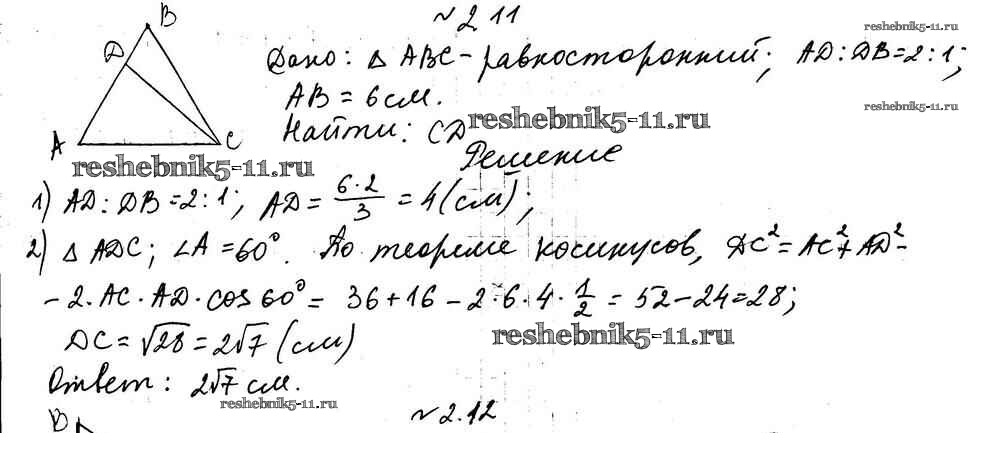 № 2.11
reshebnik5-11.ru
B
D
A
C
Дано: △ ABC - равносторонний; AD:DB=2:1;
AB = 6 см.
reshebnik5-11.ru
Найти: CD
reshebnik5-11.ru
reshebnik5-11.ru
Решение
1) AD:DB=2:1; AD = 6·2/3 = 4 (см);
2) △ ADC; ∠A = 60°. По теореме косинусов, DC² = AC² + AD² -
- 2·AC·AD·cos60° = 36+16 - 2·6·4·1/2 = 52-24=28;
DC = √28 = 2√7 (см)
reshebnik5-11.ru
Ответ: 2√7 см.
reshebnik5-11.ru
B
№ 2.12